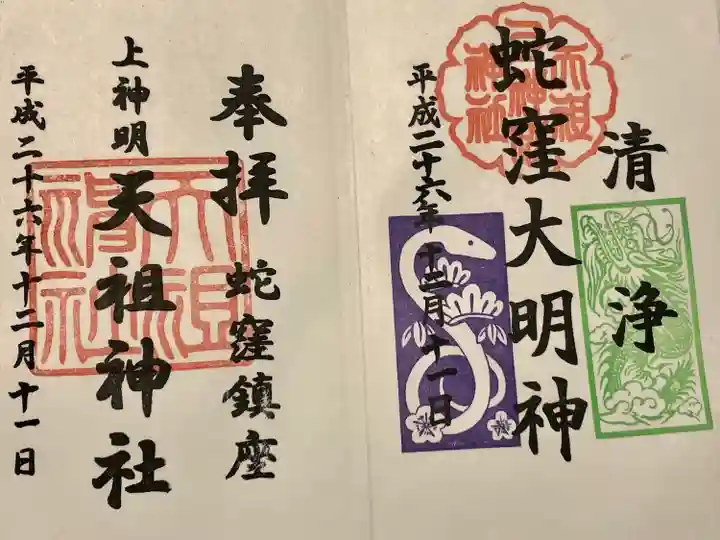 清浄
蛇窪大明神
平成二十六年十二月十一日
天祖神社
奉拝 蛇窪鎮座
上神明 天祖神社
平成二十六年十二月十一日
天祖神社